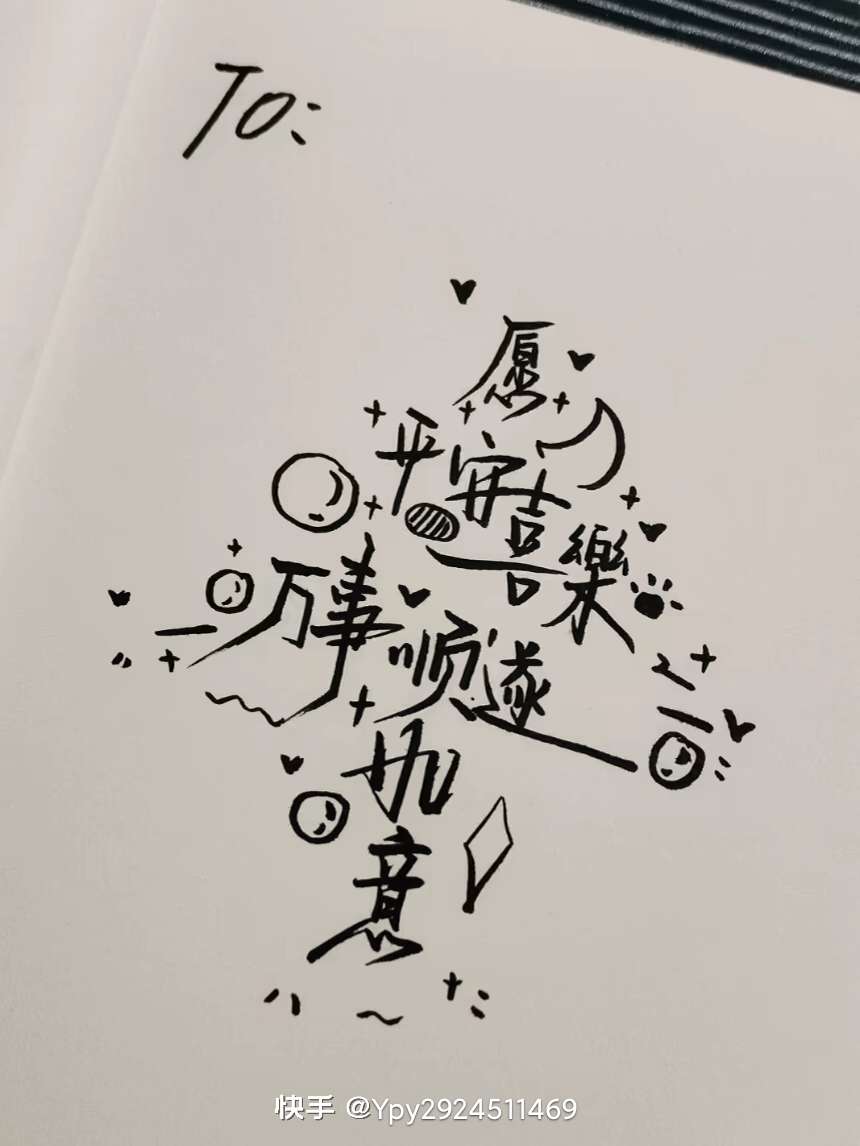 To:
愿
平安喜樂
万事顺遂
如
意
快手 @Ypy2924511469